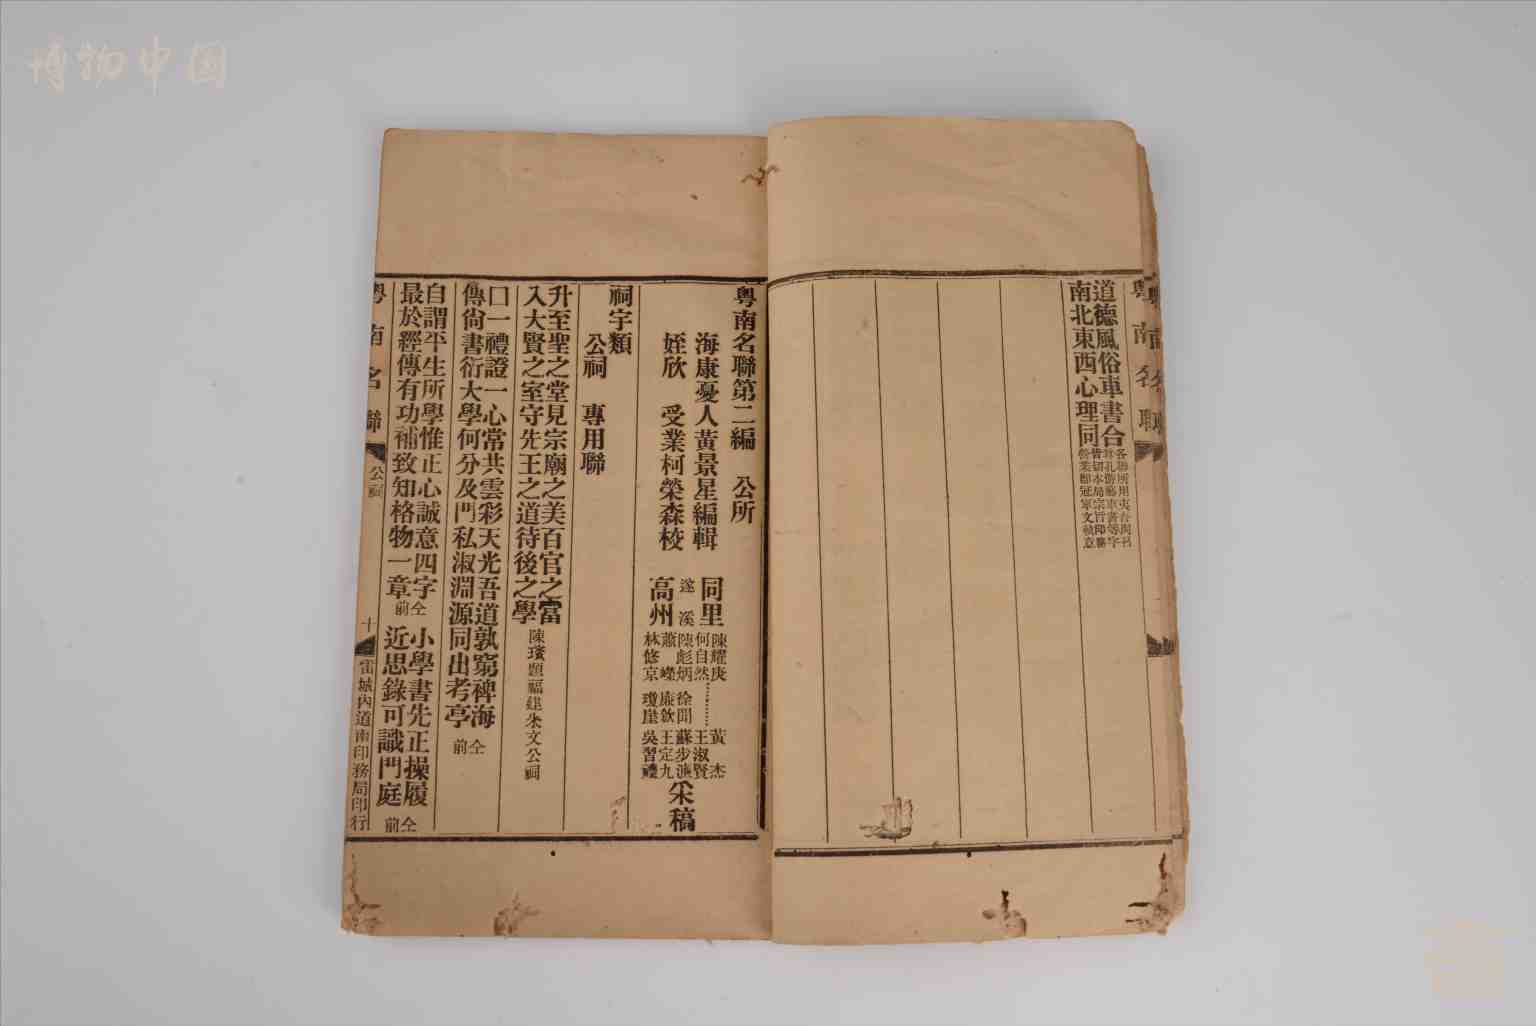 博物中国
粤南名聯
道德風俗車書合
南北東西心理同
粤南名聯第二編 公所
海康憂人黃景星編輯
姪欣 受業柯榮森校
同里 陳耀庚 何自然 黃杰 王淑賢
遂溪 陳彪炳 徐聞 蘇步濂
高州 林修京 瓊崖 吳習禮 王定九
采稿
祠宇類
公祠 專用聯
升至聖之堂見宗廟之美百官之富
入大賢之室守先王之道待後之學 陳璸題福建朱文公祠
口一禮證一心常共雲彩天光吾道敦窮裨海
傳尙書衍大學何分及門私淑淵源同出考亭 仝前
自謂平生所學惟正心誠意四字
最於經傳有功補致知格物一章 仝前
小學書先正操履
近思錄可識門庭 仝前
粤南名聯
公祠
十
雷城內道南印務局印行